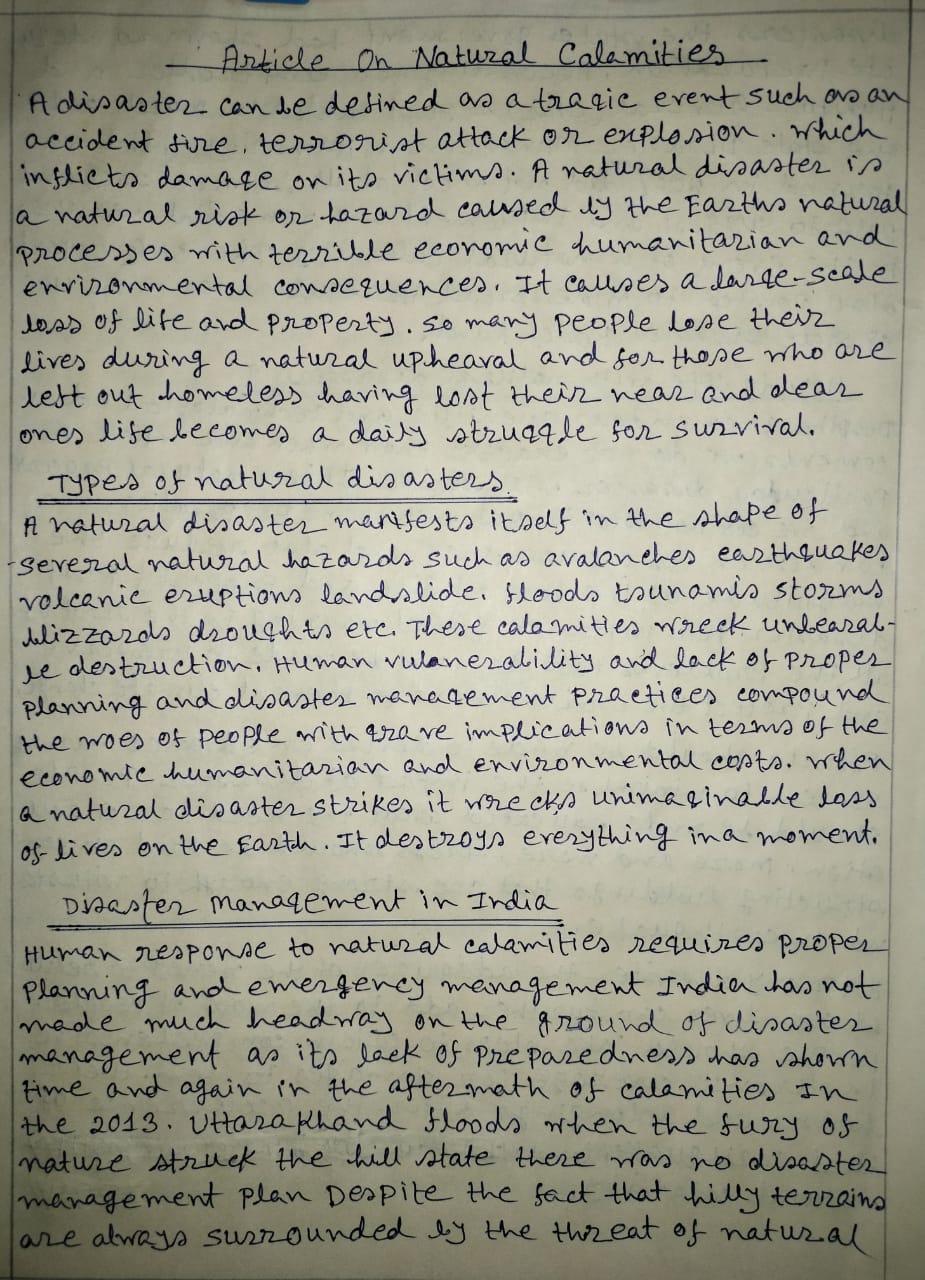 Article On Natural Calamities
A disaster can be defined as a tragic event such as an
accident fire, terrorist attack or explosion. which
inflicts damage on its victims. A natural disaster is
a natural risk or hazard caused by the Earths natural
processes with terrible economic humanitarian and
environmental consequences. It causes a large-scale
loss of life and property. so many people lose their
lives during a natural upheaval and for those who are
left out homeless having lost their near and dear
ones life becomes a daily struggle for survival.
Types of natural disasters.
A natural disaster manifests itself in the shape of
several natural hazards such as avalanches earthquakes
volcanic eruptions landslide. floods tsunamis storms
blizzards droughts etc. These calamities wreck unbearab-
le destruction. Human vulanerability and lack of proper
planning and disaster management practices compound
the woes of people with grave implications in terms of the
economic humanitarian and environmental costs. when
a natural disaster strikes it wrecks unimaginable loss
of lives on the Earth. It destroys everything in a moment.
Disaster management in India
Human response to natural calamities requires proper
planning and emergency management India has not
made much headway on the ground of disaster
management as its lack of preparedness has shown
time and again in the aftermath of calamities In
the 2013. Uttarakhand floods when the fury of
nature struck the hill state there was no disaster
management plan Despite the fact that hilly terrains
are always surrounded by the threat of natural